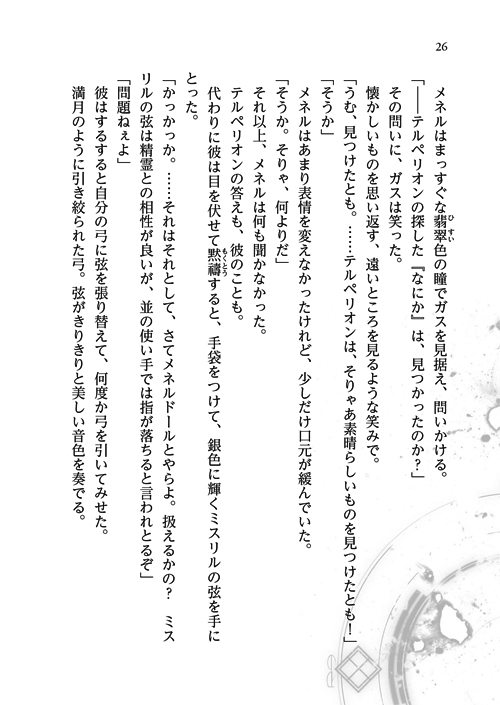 26
メネルはまっすぐな翡翠色の瞳でガスを見据え、問いかける。
「――テルペリオンの探した『なにか』は、見つかったのか？」
その問いに、ガスは笑った。
懐かしいものを思い返す、遠いところを見るような笑みで。
「うむ、見つけたとも。……テルペリオンは、そりゃあ素晴らしいものを見つけたとも！」
「そうか」
メネルはあまり表情を変えなかったけれど、少しだけ口元が緩んでいた。
「そうか。そりゃ、何よりだ」
それ以上、メネルは何も聞かなかった。
テルペリオンの答えも、彼のことも。
代わりに彼は目を伏せて黙禱すると、手袋をつけて、銀色に輝くミスリルの弦を手に
とった。
「かっかっか。……それはそれとして、さてメネルドールとやらよ。扱えるかの？　ミス
リルの弦は精霊との相性が良いが、並の使い手では指が落ちると言われとるぞ」
「問題ねぇよ」
彼はするすると自分の弓に弦を張り替えて、何度か弓を引いてみせた。
満月のように引き絞られた弓。弦がきりきりと美しい音色を奏でる。